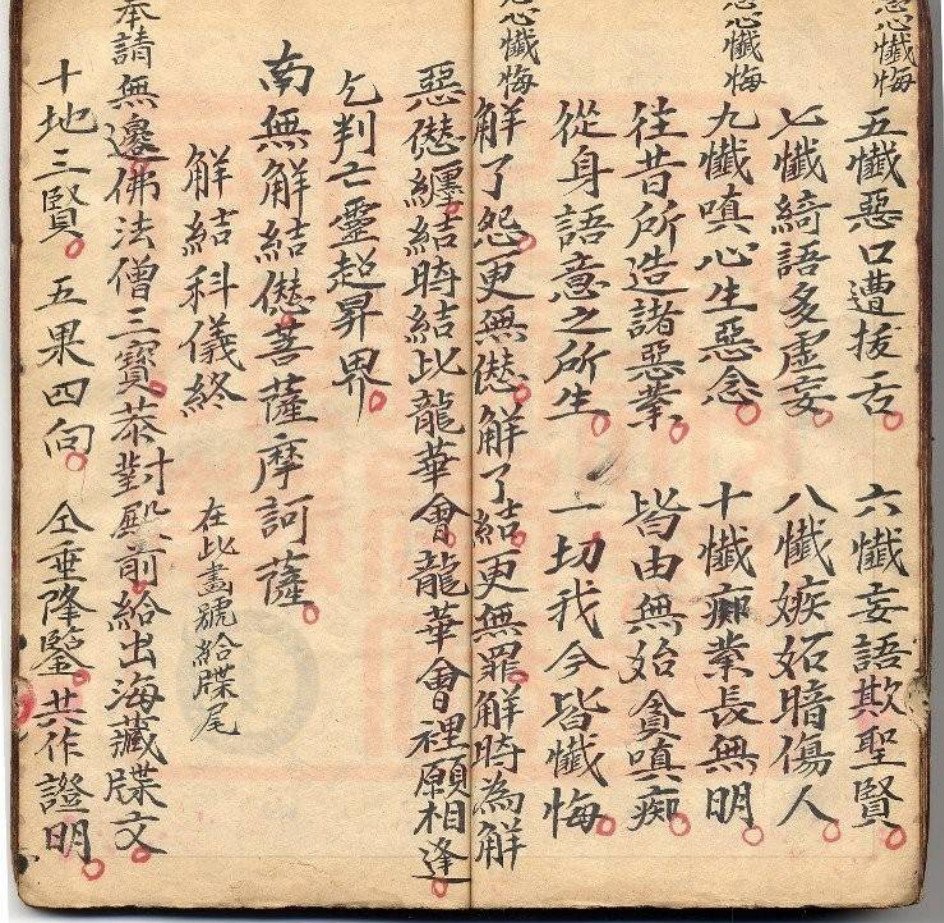 忿心懺悔
五懺惡口遭拔舌 六懺妄語欺聖賢
七懺綺語多虛妄 八懺嫉妬暗傷人
心懺悔
九懺嗔心生惡念 十懺癡業長無明
往昔所造諸惡業 皆由無始貪嗔痴
從身語意之所生 一切我今皆懺悔
心懺悔
解了怨更無愆 解了結更無罪 解時為解
惡愆纏結時結 比龍華會龍華會裡願相逢
乞判亡靈超昇界
南無解結愆菩薩摩訶薩
解結科儀終 在此畫號給牒尾
奉請無邊佛法僧三寶 恭對殿前給出海藏牒文
十地三賢 五果四向 仝垂降鑒 共作證明